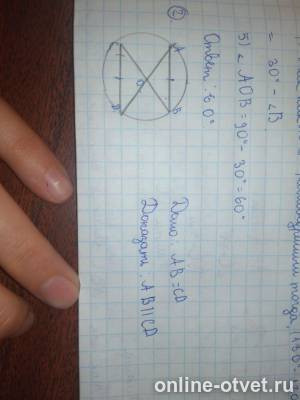 = 30° - ∠B
5) ∠AOB = 90° - 30° = 60°
Ответ: 60°
②
A
B
O
C
D
Дано: AB = CD
Доказать: AB || CD
online-otvet.ru